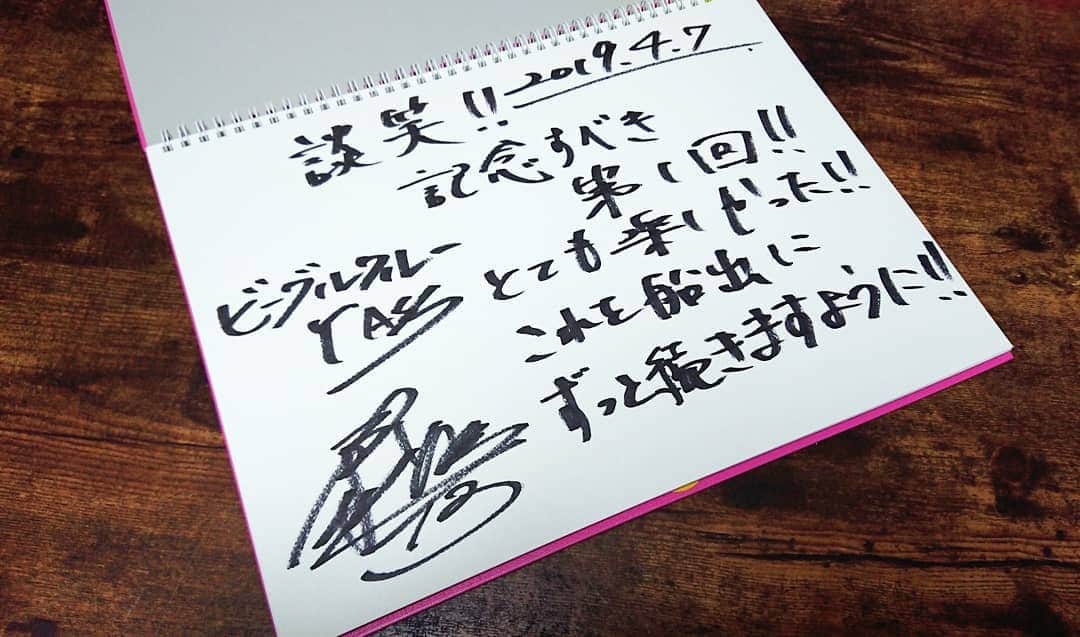 2019.4.7
談笑!!
記念すべき
第1回!!
とても楽しかった!!
これを船出に
ずっと続きますように!!
ビーグルクルー
YASS